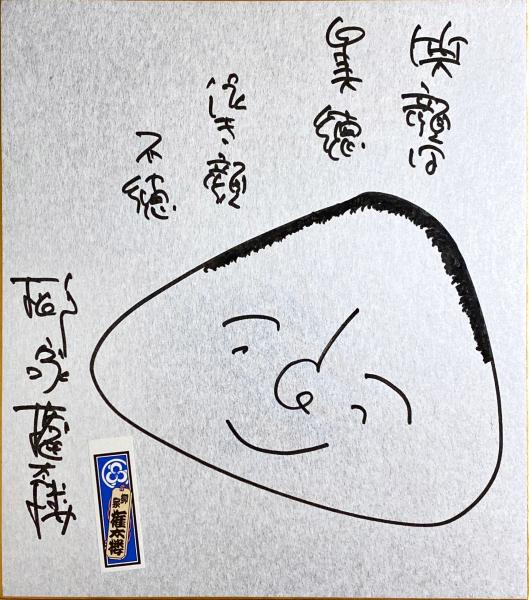 笑顔は
美徳
泣き顔
不徳
柳家権太楼
柳家
権太楼